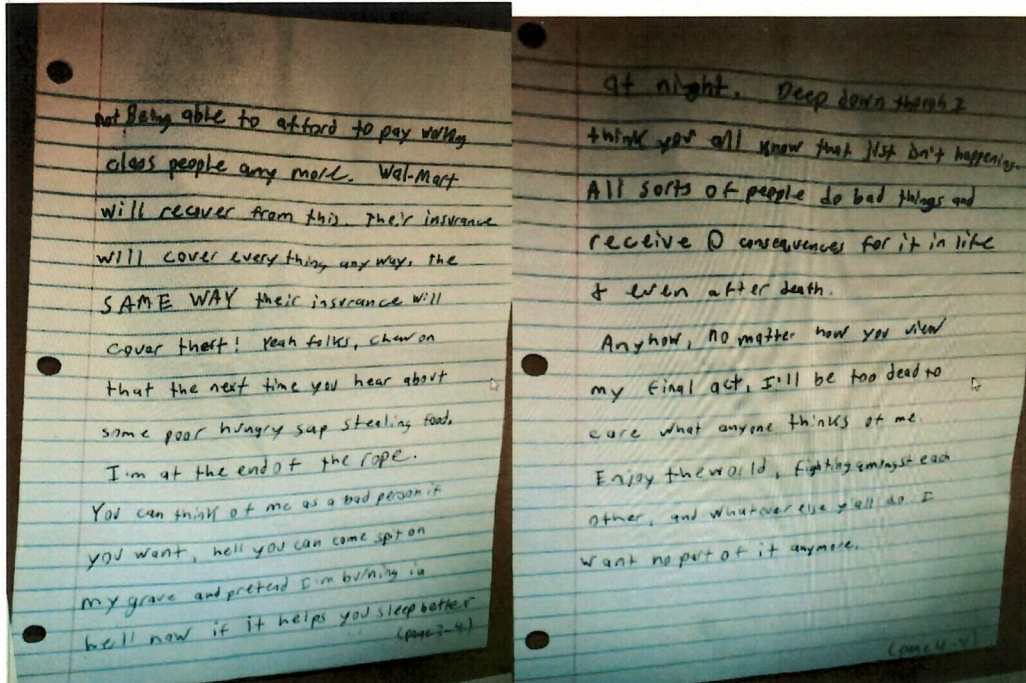 not Being able to afford to pay working
class people any more. Wal-Mart
will recover from this. Their insurance
will cover everything any way, the
SAME WAY their insurance will
cover theft! Yeah folks, chew on
that the next time you hear about
some poor hungry sap stealing food.
I'm at the end of the rope.
You can think of me as a bad person if
you want, hell you can come spit on
my grave and pretend I'm burning in
hell now if it helps you sleep better
(page 3-4)
at night. Deep down though I
think you all know that just isn't happening.
All sorts of people do bad things and
receive 0 consequences for it in life
& even after death.
Anyhow, no matter how you view
my final act, I'll be too dead to
care what anyone thinks of me.
Enjoy the world, fighting amongst each
other, and whatever else y'all do I
want no part of it anymore.
(page 4-4)